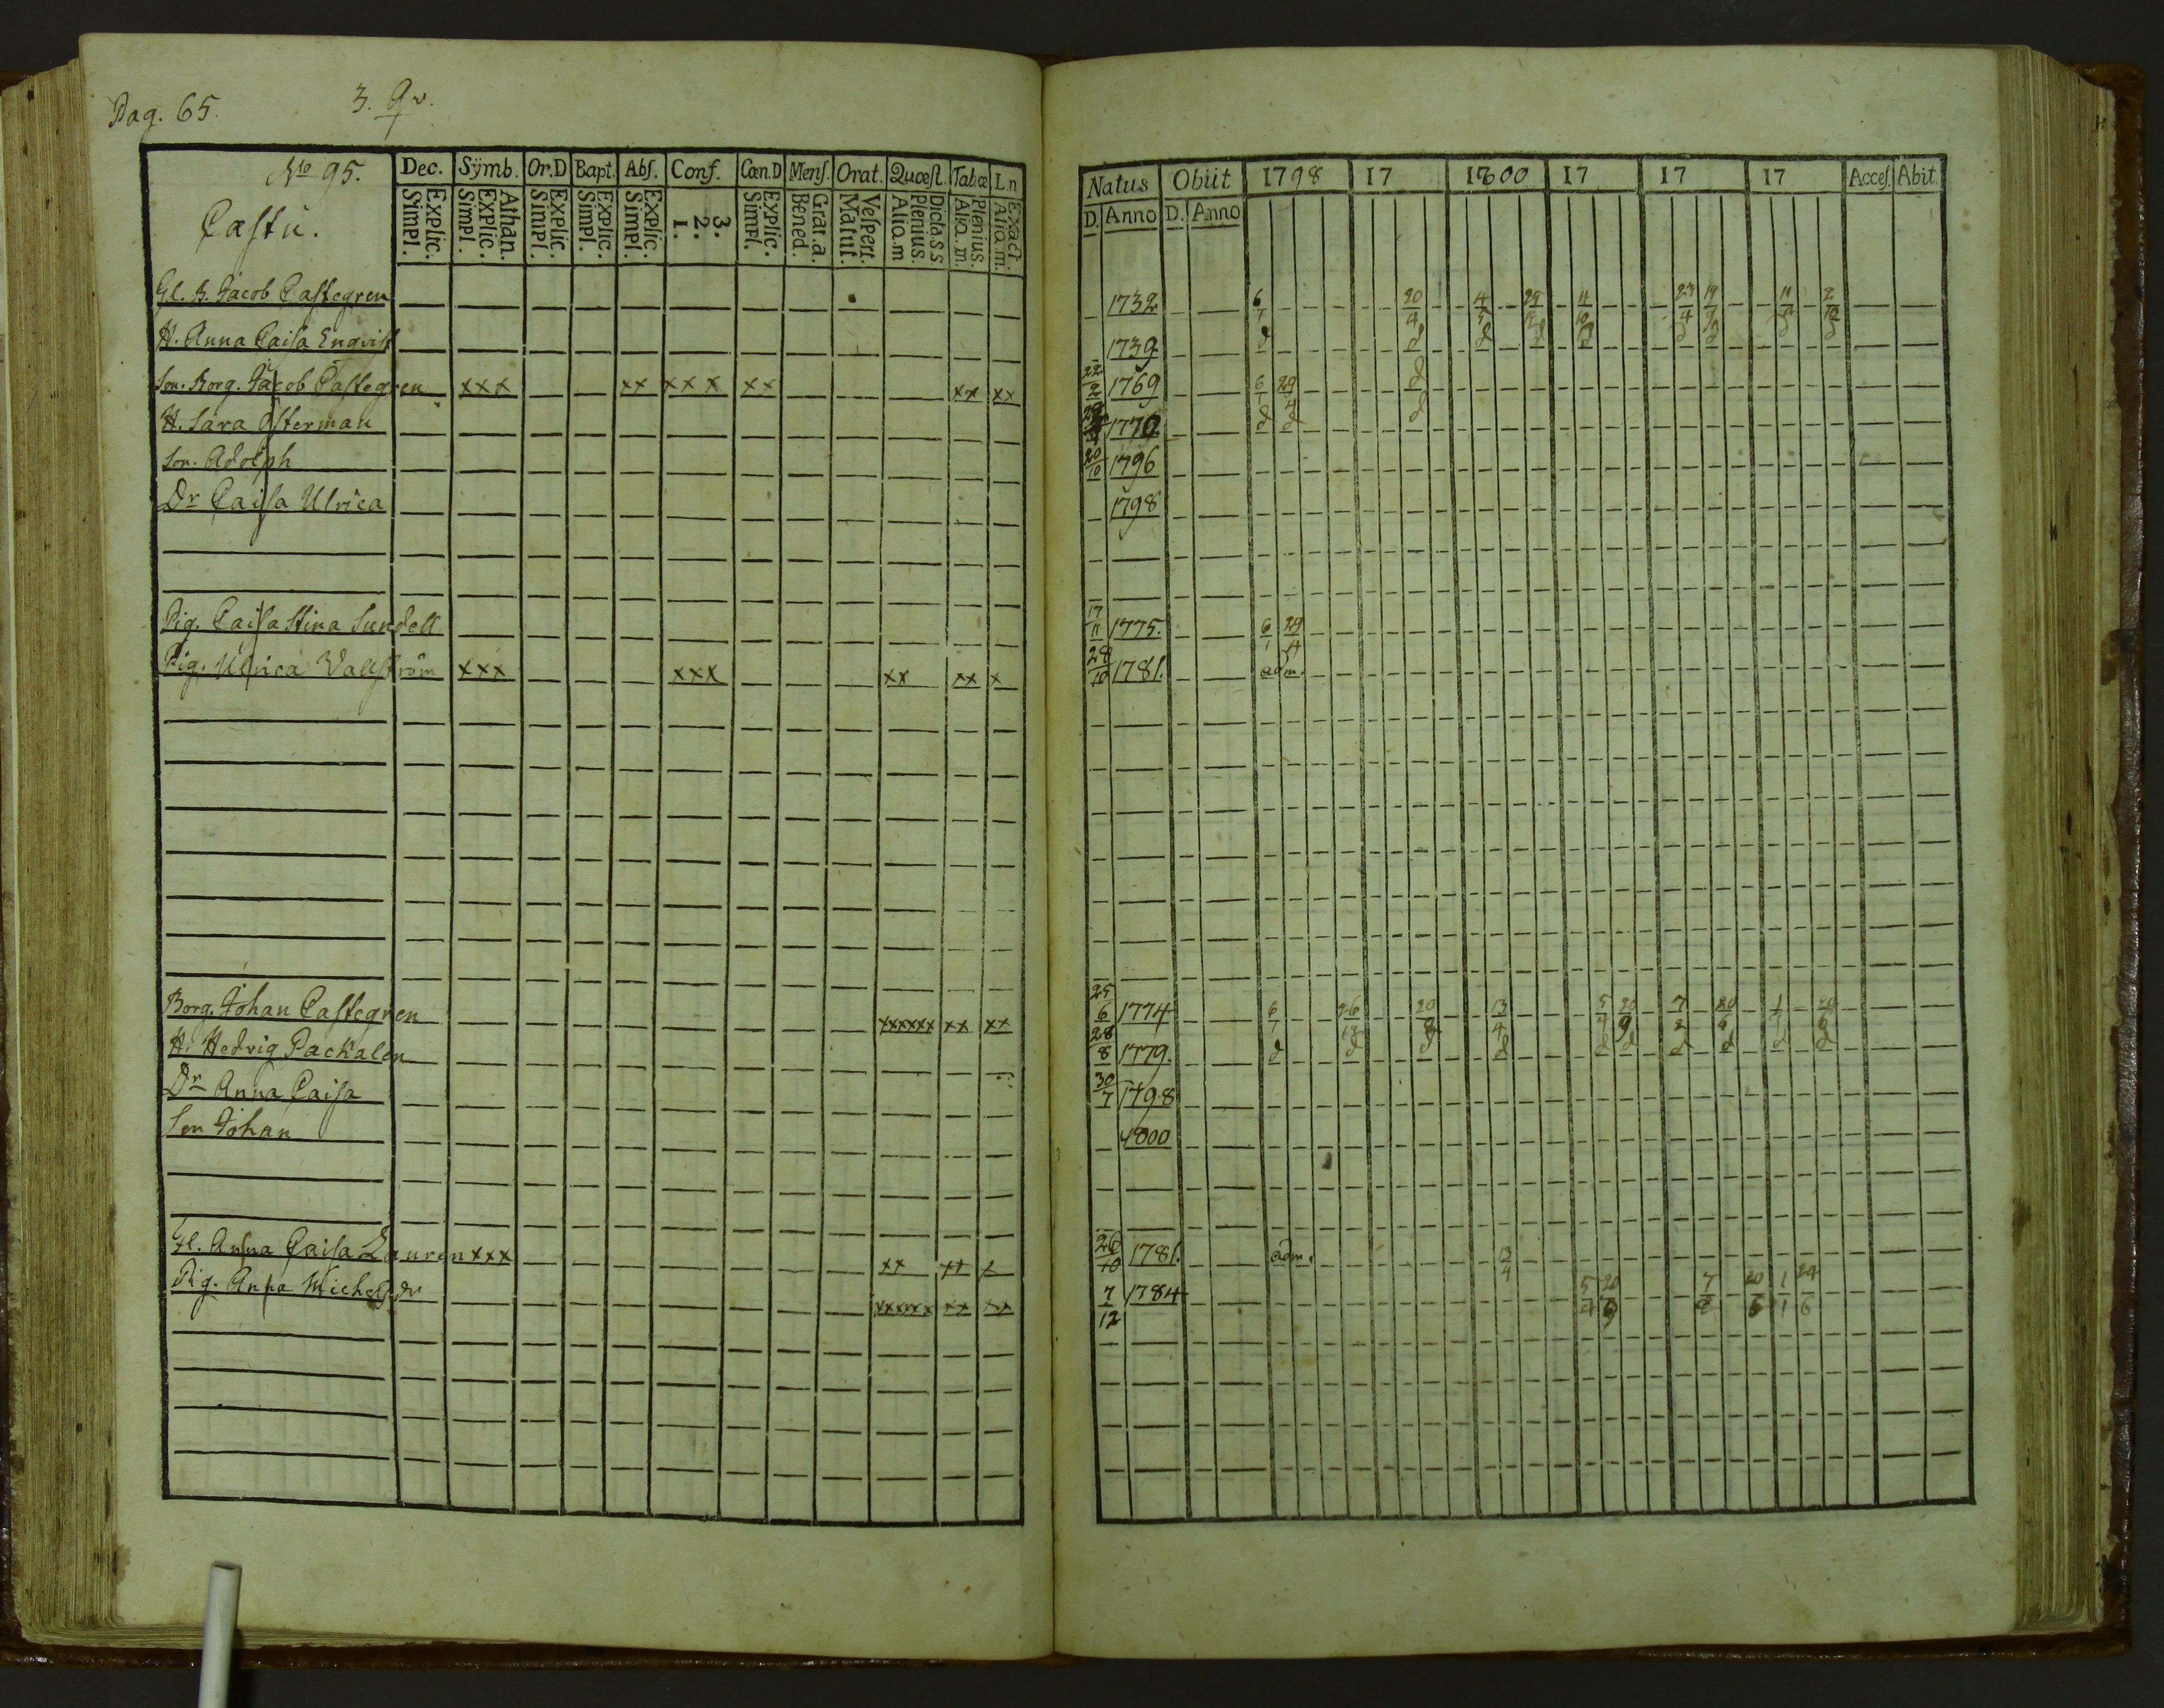 Pag. 65. 3. Qv.
No 95. Dec. Sÿmb. Or.D Bapt. Abſ. Conf. Cœn.D Menſ. Orat. Quœſt. Tabœ L.n
Caſtu. Explic. Simpl. Athan. Explic. Simpl. Explic. Simpl. Explic. Simpl. Explic. Simpl. 3. 2. 1. Explic. Simpl. Grat.a. Bened. Veſpert. Matut. Dicta.s.s Plenius. Alio.m Plenius. Alio.m. Exact. Alio.m.
Gl. B. Jacob Caſtegren
H. Anna Caiſa Enqviſt
Son. Borg. Jacob Caſtegren xxx xx xxx xx xx xx
H. Sara Oſterman
Son. Adolph
Dr Caiſa Ulrica
Pig. Caiſa Stina Sundell
Pig. Ulrica Vallſtröm xxx xxx xx xx x
Borg. Johan Caſtegren xxxxxx xx xx
H. Hedvig Packalen
Dr Anna Caiſa
Son Johan
Fl. Anna Caiſa Lauren xxx xx xx x
Pig. Anna Michelsdr xxxxxx xx xx
Natus Obiit 1798 17 1800 17 17 17 Acceſ. Abit.
D. Anno D. Anno
1732 6/1 20/4 4/5 11/10 23/4
1739 d d d d d d d d d
22/2 1769 6/1 29/4 d
1770 d d d
20/10 1796
1798
17/11 1775. 6/1 29/4
28/10 1781. adm.
25/6 1774 6/1 26 20 13/4 5/4 20/9 7 20/6 1/1 24/6
28/8 1779. d d d d d d d d d d
30/7 1798
1800
26/10 1781. adm. 13/4
7/12 1784 5/4 20/9 7 20/6 1/1 24/6